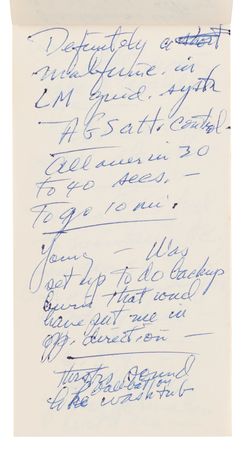 Definitely a short
malfunc. in
LM guid. syst
AGS att. control.
All over in 30
to 40 secs. —
To go 10 mi.
Young — Was
set up to do backup
burn that woud
have put me in
opp. direction —
thrstrs sound
like baseball on
washtub